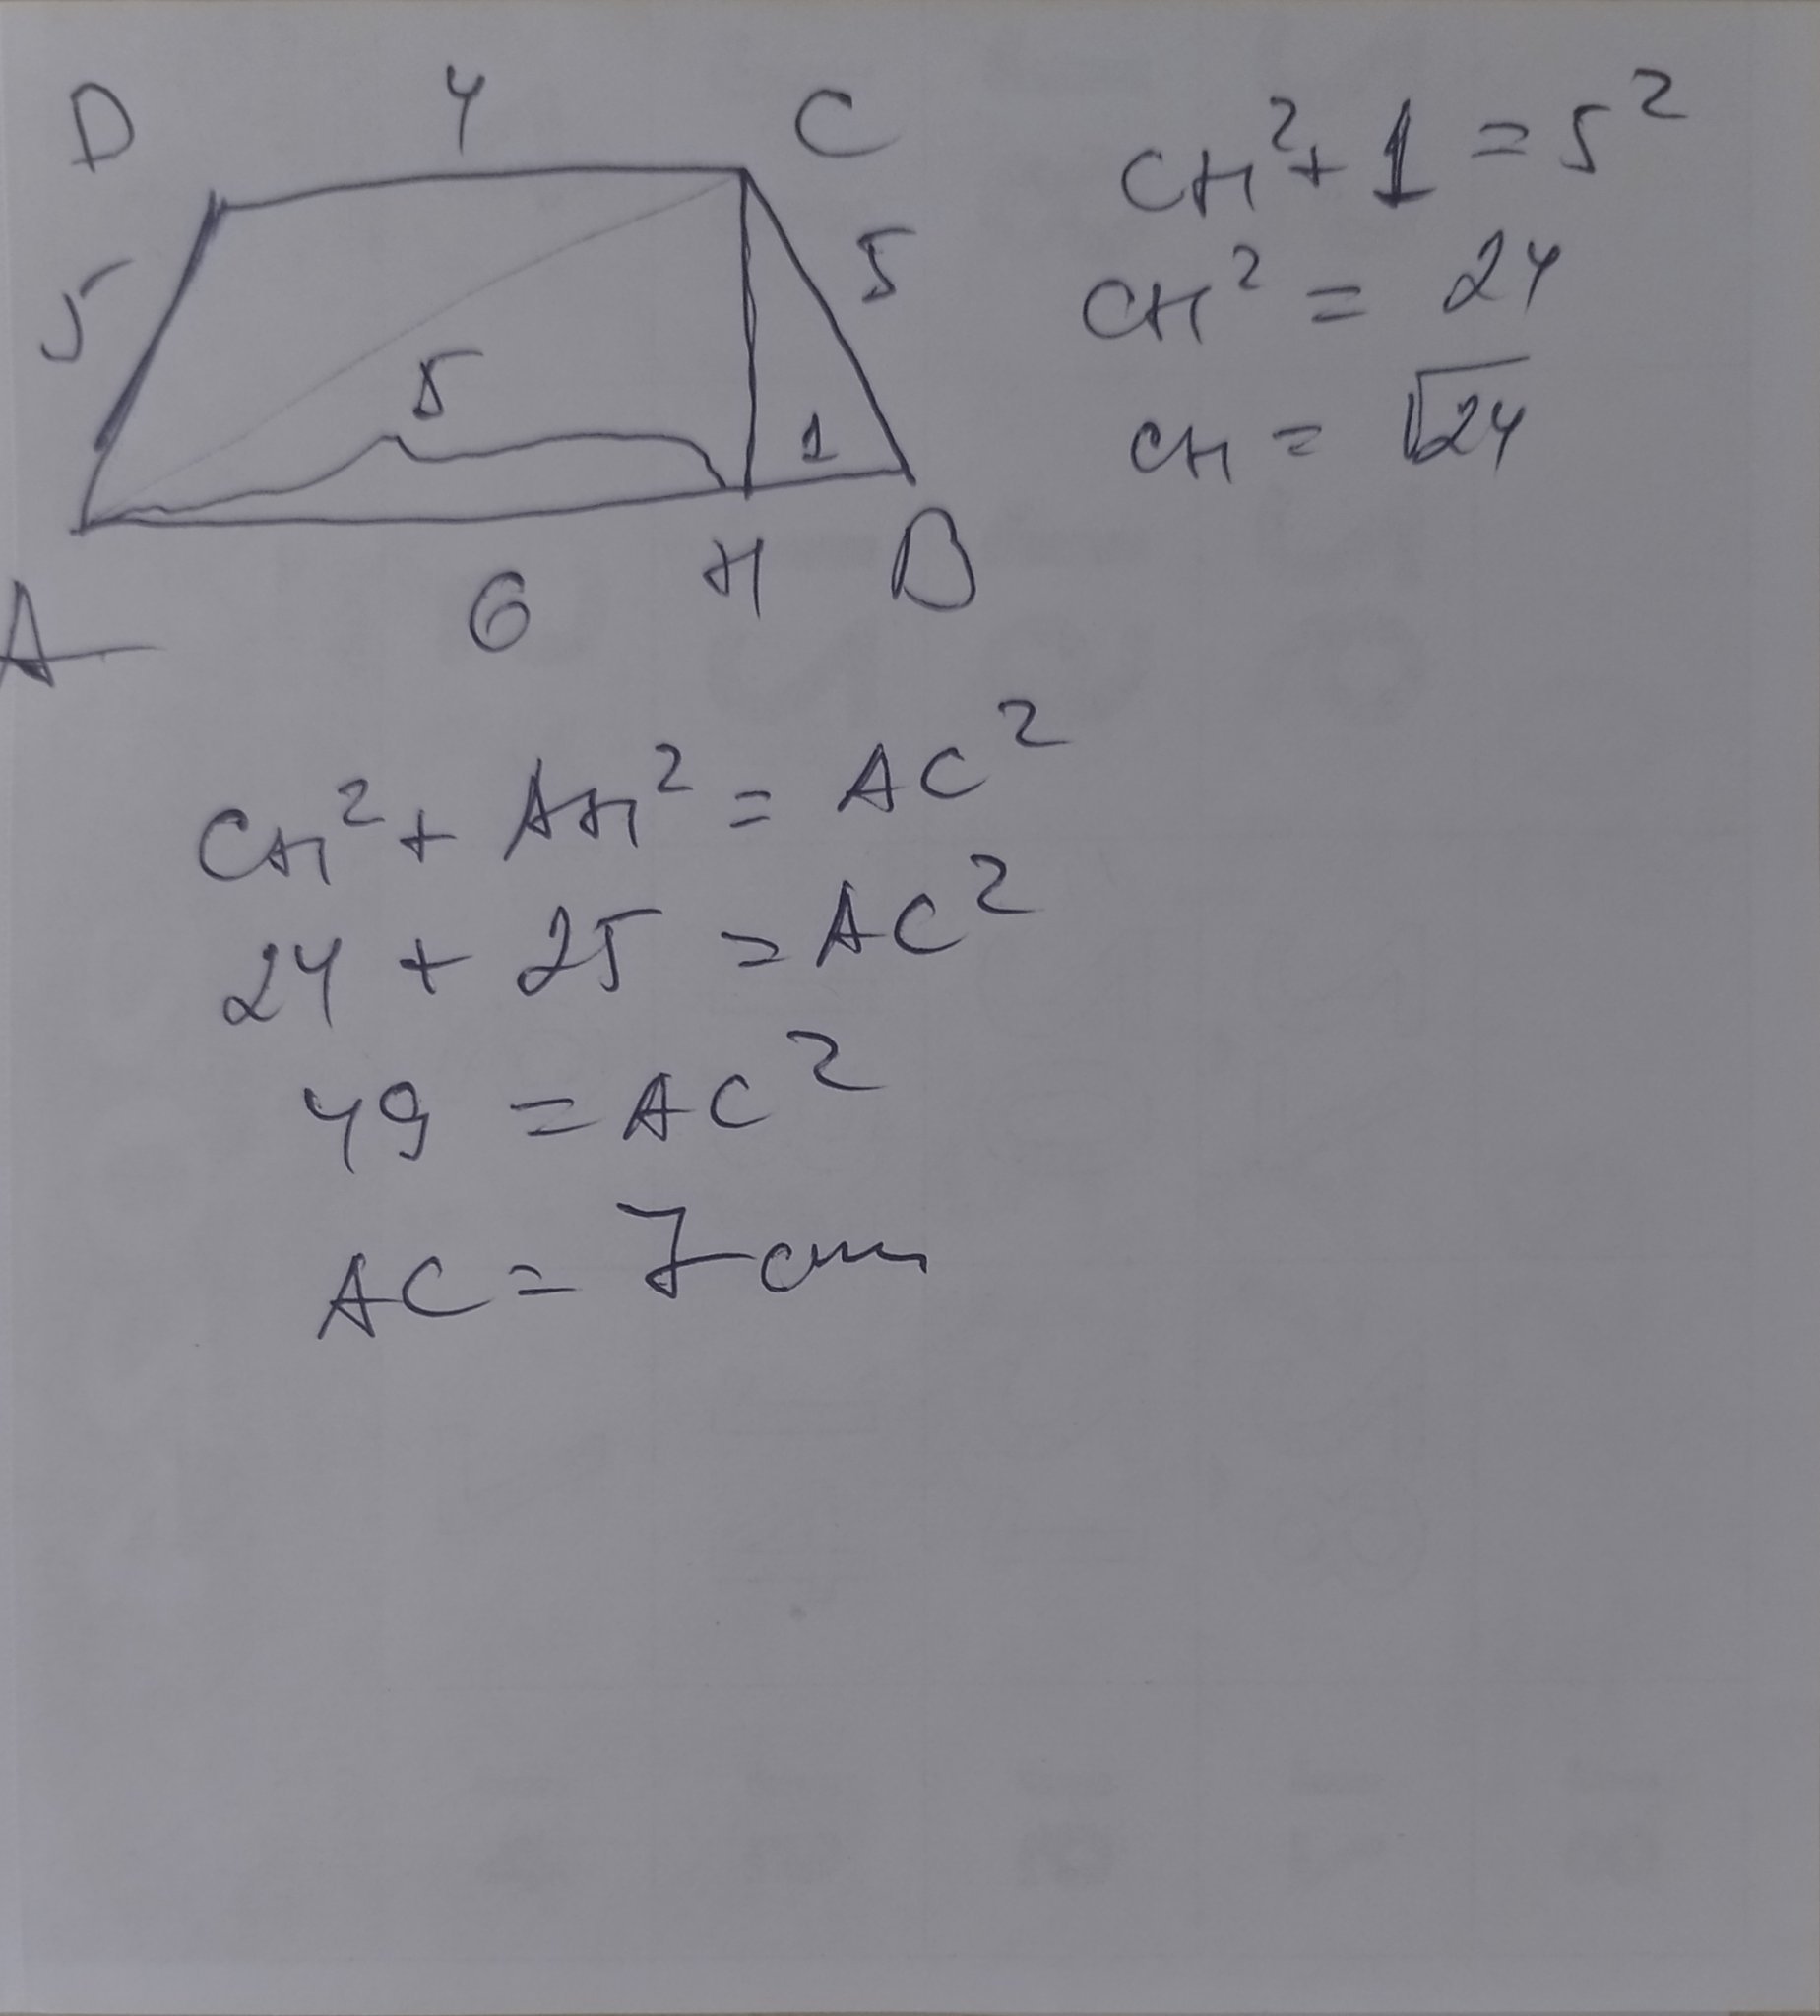 D 4 C
5 5
5 1
A 6 H B
CH² + 1 = 5²
CH² = 24
CH = √24
CH² + AH² = AC²
24 + 25 = AC²
49 = AC²
AC = 7 cm